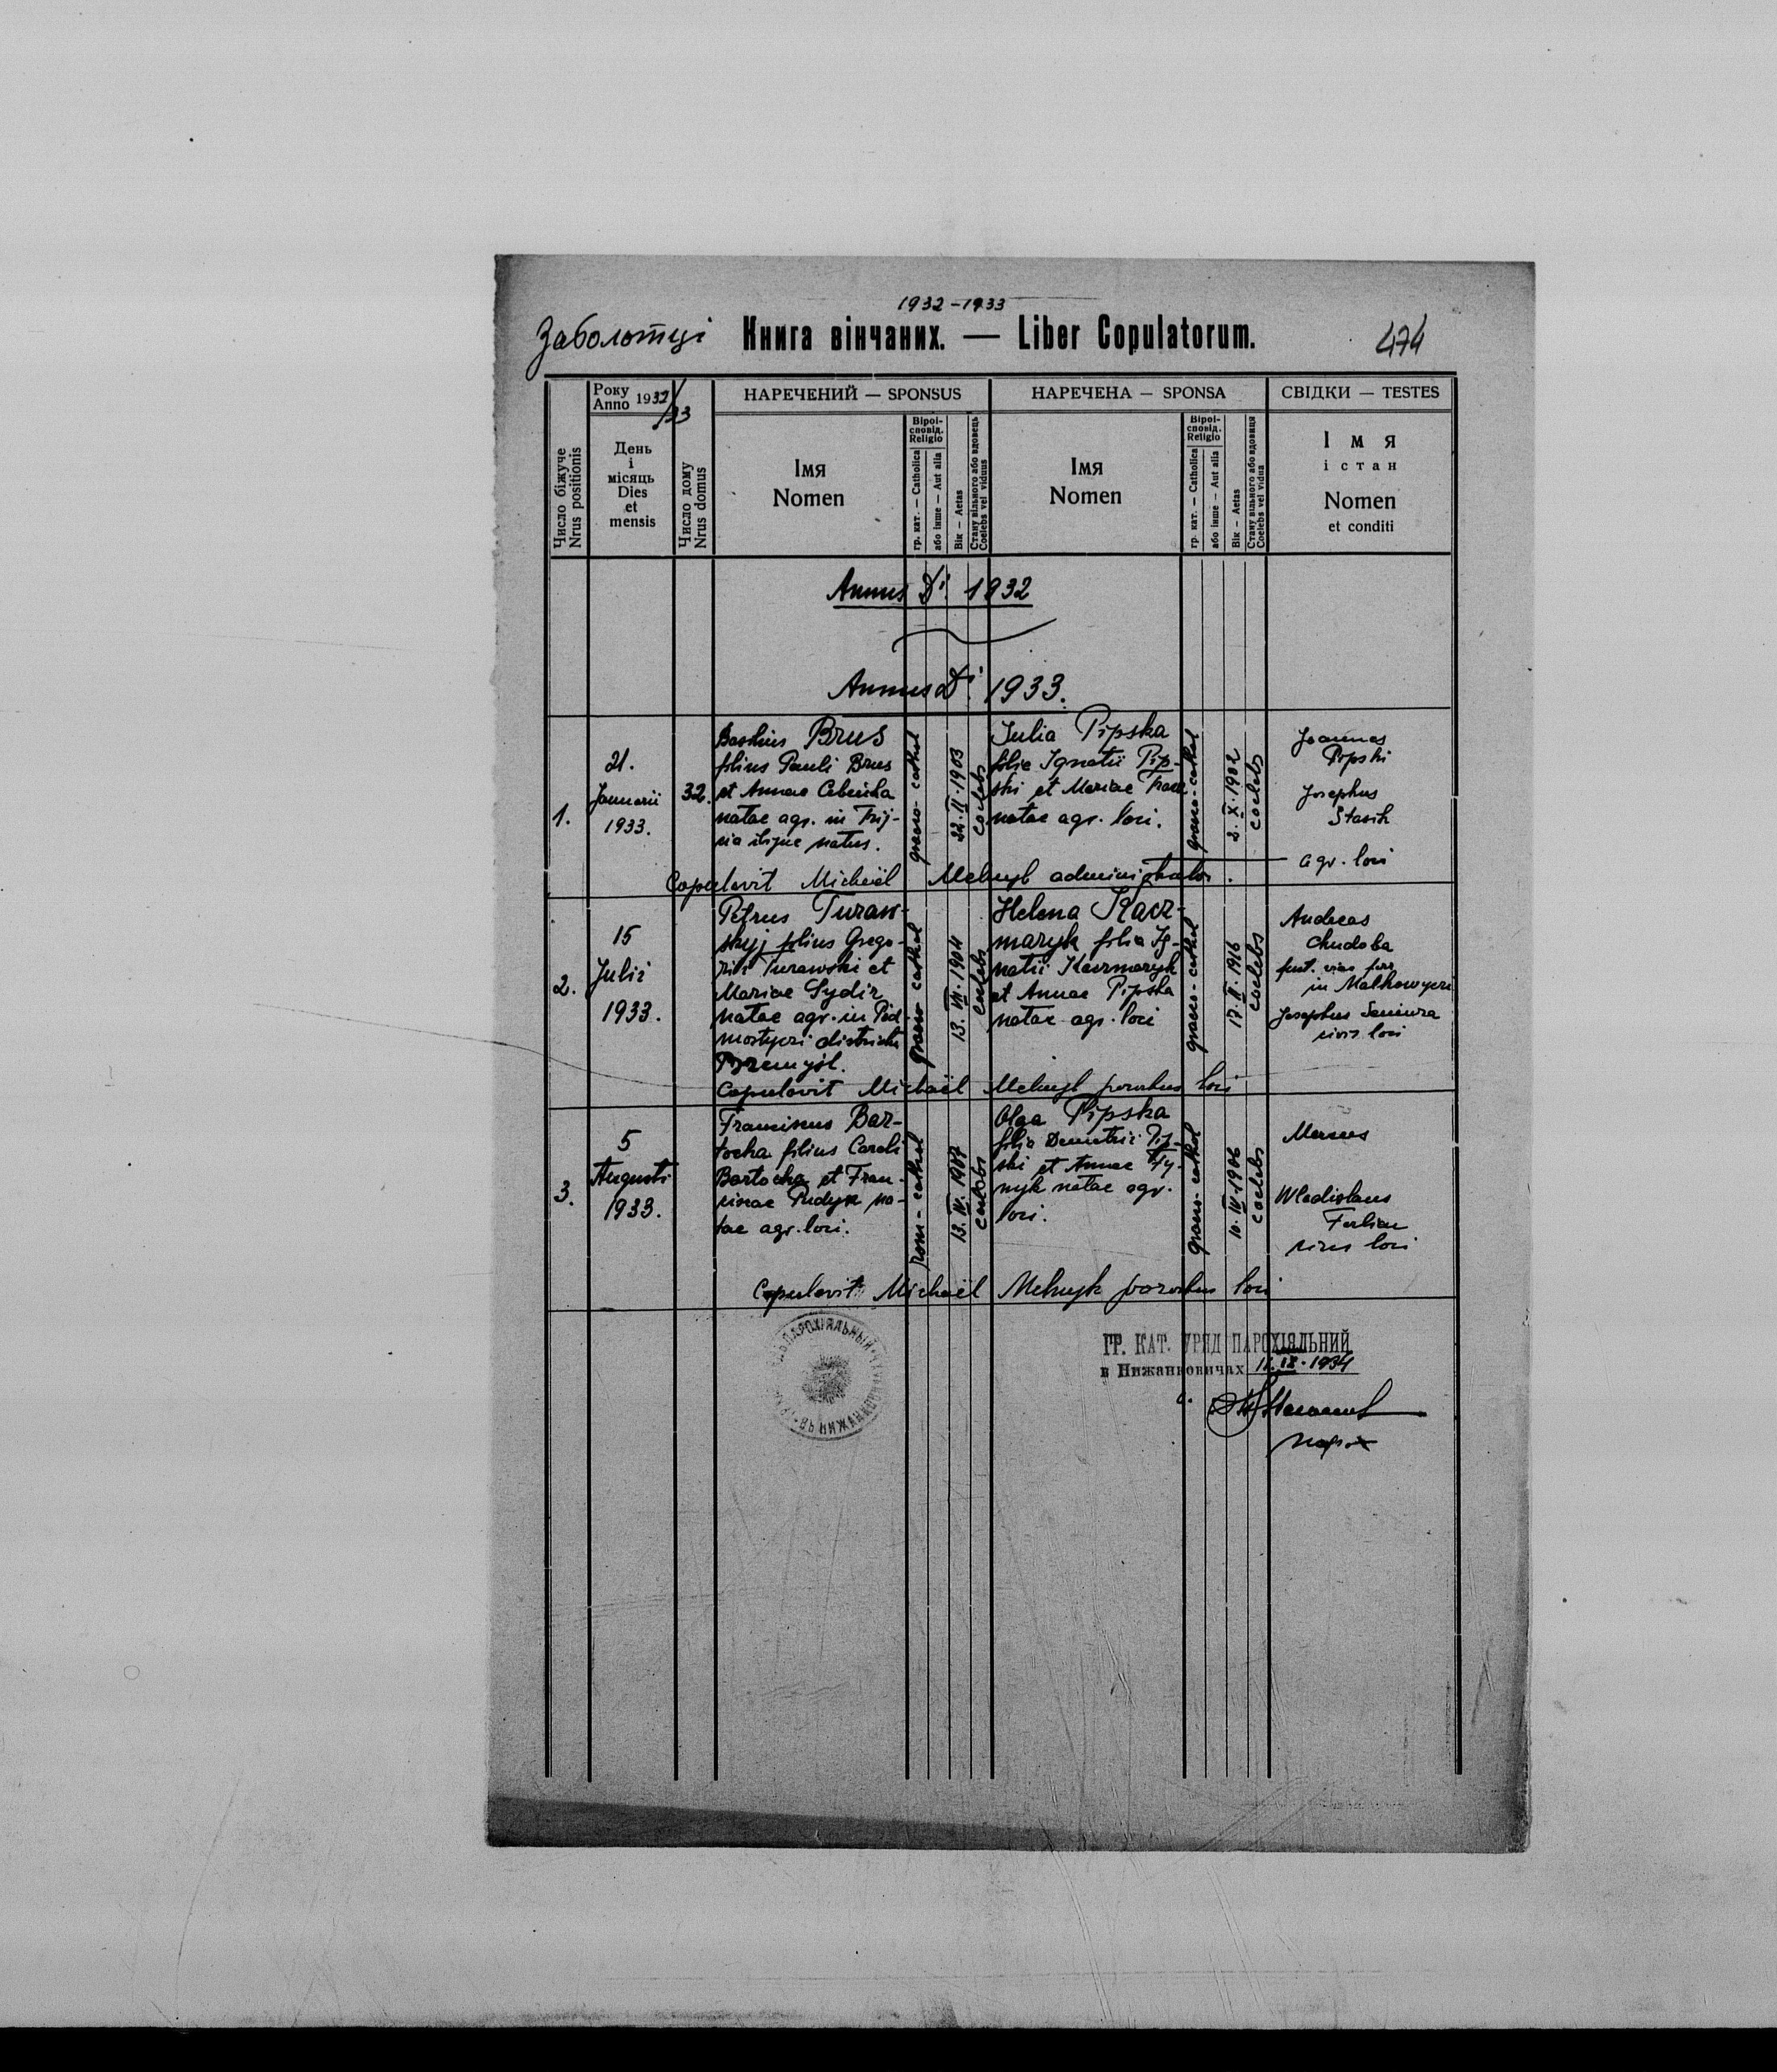 1932-1933
Заболотці Книга вінчаних. — Liber Copulatorum. 474
Число біжуче
Nrus positionis
Року
Anno 1932/33
День
і
місяць
Dies
et
mensis
Число дому
Nrus domus
НАРЕЧЕНИЙ — SPONSUS
Імя
Nomen
Віроі-
сповід.
Religio
гр. кат. — Catholica
або інше — Aut alia
Вік — Aetas
Стану вільного або вдовець
Coelebs vel viduus
НАРЕЧЕНА — SPONSA
Імя
Nomen
Віроі-
сповід.
Religio
гр. кат. — Catholica
або інше — Aut alia
Вік — Aetas
Стану вільного або вдовиця
Coelebs vel vidua
СВІДКИ — TESTES
Імя
і стан
Nomen
et conditi
Annus Di 1932
Annus Di 1933.
1.
21.
Januarii
1933.
32.
Basilius Brus
filius Pauli Brus
et Annae
natae agr. in
natus.
graeco-cathol
22.II.1903
coelebs
Julia Pipska
filia Ignatii Pip-
ski et Mariae
natae agr. loci.
graeco-cathol
2.X.1902
coelebs
Joannes
Pipski
Josephus
Stasik
agr. loci
Copulavit Michaël Melnyk administrator.
2.
15
Julii
1933.
Petrus Turaw-
skyj filius Grego-
rii Turawski et
Mariae Sydir
natae agr. in Pid-
mostyczi districtu
Przemyśl.
graeco-cathol
13.VII.1904
coelebs
Helena Kacz-
maryk filia Ig-
natii Kaczmaryk
et Annae Pipska
natae agr. loci
graeco-cathol
17.II.1916
coelebs
Andreas
Chudoba
in Malkowyczi
Josephus
loci
Copulavit Michaël Melnyk parochus loci
3.
5
Augusti
1933.
Franciscus Bar-
tocha filius Caroli
Bartocha et Fran-
ciscae na-
tae agr. loci.
rom-cathol
13.IV.1907
coelebs
Olga Pipska
filia Demetrii Pip-
ski et Annae Ty-
nyk natae agr.
loci.
graeco-cathol
10.IV.1906
coelebs
Wladislaus
loci
Copulavit Michaël Melnyk parochus loci
ГР. КАТ. УРЯД ПАРОХІЯЛЬНИЙ
в Нижанковичах 1934
парох